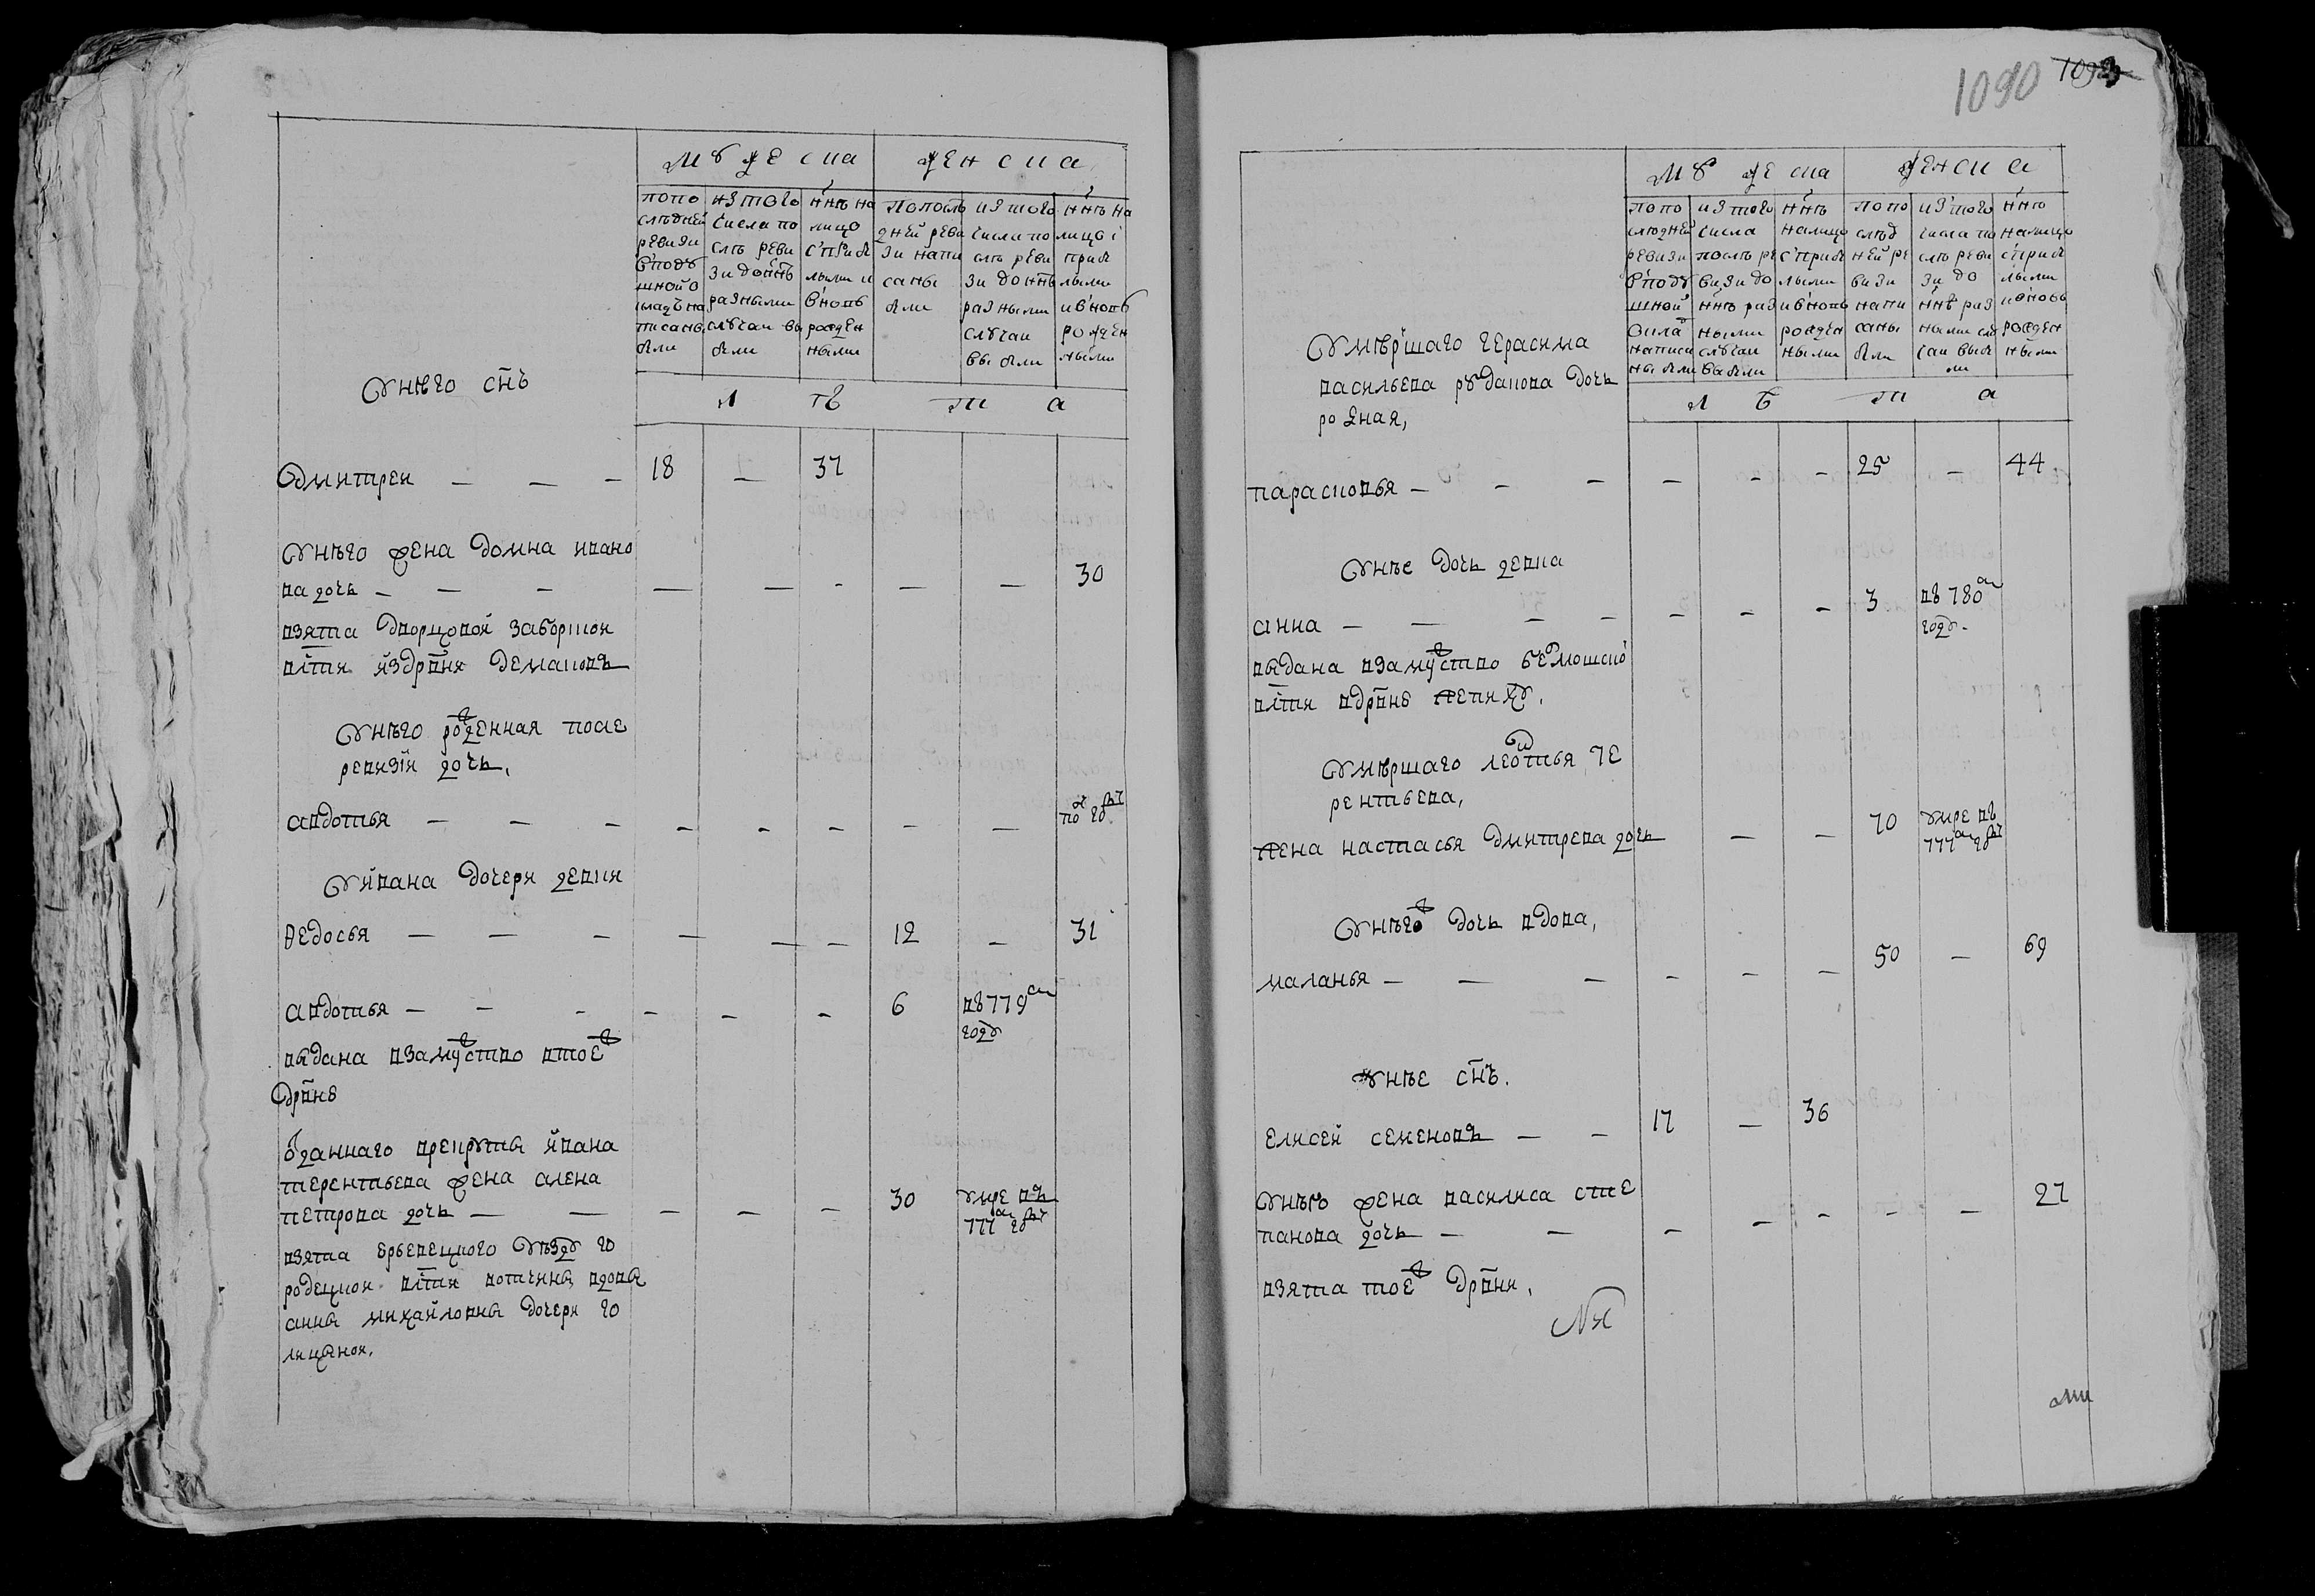 мужеска женска
попо
слѣдней
ревизи
в'подѣ
шной о
кладъ на
писаны
были
изтого
числа по
слѣ реви
зи до ннѣ
разными
случаи вы
были
ннѣ на
лицо
с'прибы
лыми и
вновь
рожден
ными
попослѣ
дней реви
зи напи
саны
были
из того
числа по
слѣ реви
зи до ннѣ
разными
случаи
вы были
ннѣ на
лицо i
прибы
лыми
ивновь
рожден
ными
лѣта
Унѣго снъ
дмитреи — — — 18 — 37
Унѣго жена домна ивано
ва дочь — — — — — - — — 30
взята дворцовой
влсти издрвни
Унѣго рожденная после
ревизiи дочь,
авдотья — — — — — — — — по году
Уивана дочери девки
Ѳедосья — — — — — — 12 — 31
авдотья — — - — — - 6 въ 779м
году
выдана взамуство втоеж
дрвнѣ
отданнаго врекруты ивана
терентьева жена алена
петрова дочь — — — — — 30 умре въ
777м году
взята уѣзду го
родецкои влсти вотчины вдовы
анны михайловны дочери го
лицыной.
1090 1093
мужеска женска
попо
слѣдней
ревизи
в'поду
шной
окладъ
написа
ны были
из того
числа
послѣ ре
визи до
ннѣ раз
ными
случаи
выбыли
ннѣ
налицо
с'прибы
лыми
ивновь
рожден
ными
попо
слѣд
ней ре
визи
напи
саны
были
из'того
числа по
слѣ реви
зи до
ннѣ раз
ными слу
чаи выбы
ли
ннѣ
налицо
с'прибы
лыми
ивновь
рожден
ными
лѣта
Умѣршаго герасима
васильева рудакова дочь
родная,
парасковья — - — — - — 25 — 44
Унѣе дочь девка
анна — — — — — — — 3 въ 780м
году -
выдана взамуство
влсти вдрвню
Умѣршаго леонтья те
рентьева,
жена настасья дмитрева дочь — — 70 умре въ
777м году
Унѣгож дочь вдова,
маланья — — — — — — 50 — 69
унѣе снъ.
елисей семеновъ — — 17 — 36
Унѣго жена василиса сте
панова дочь — — — — - - — 27
взята тоеж дрвни,